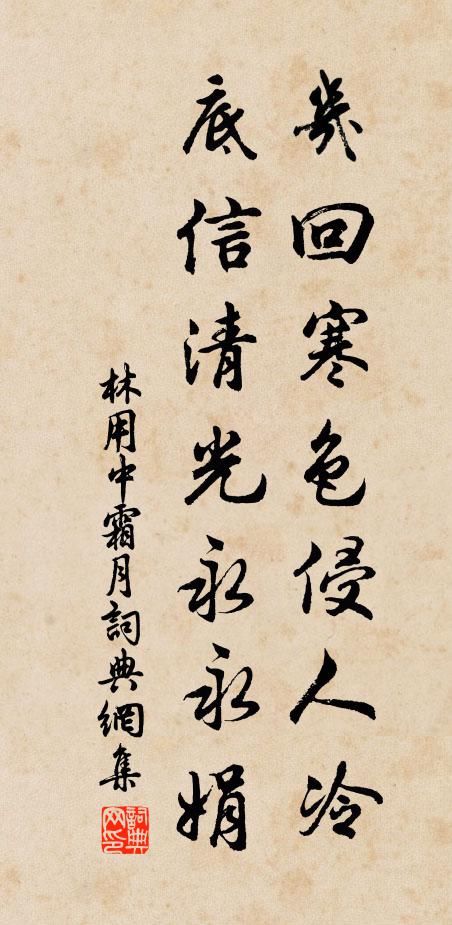 幾回寒色侵人冷
底信清光永永娟
林用中霜月詞典網集
詞典網印